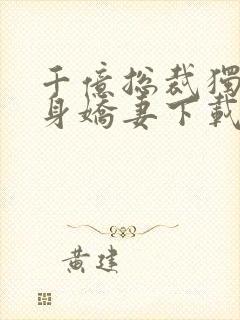 千億总裁獨
身嬌妻下載
黄建